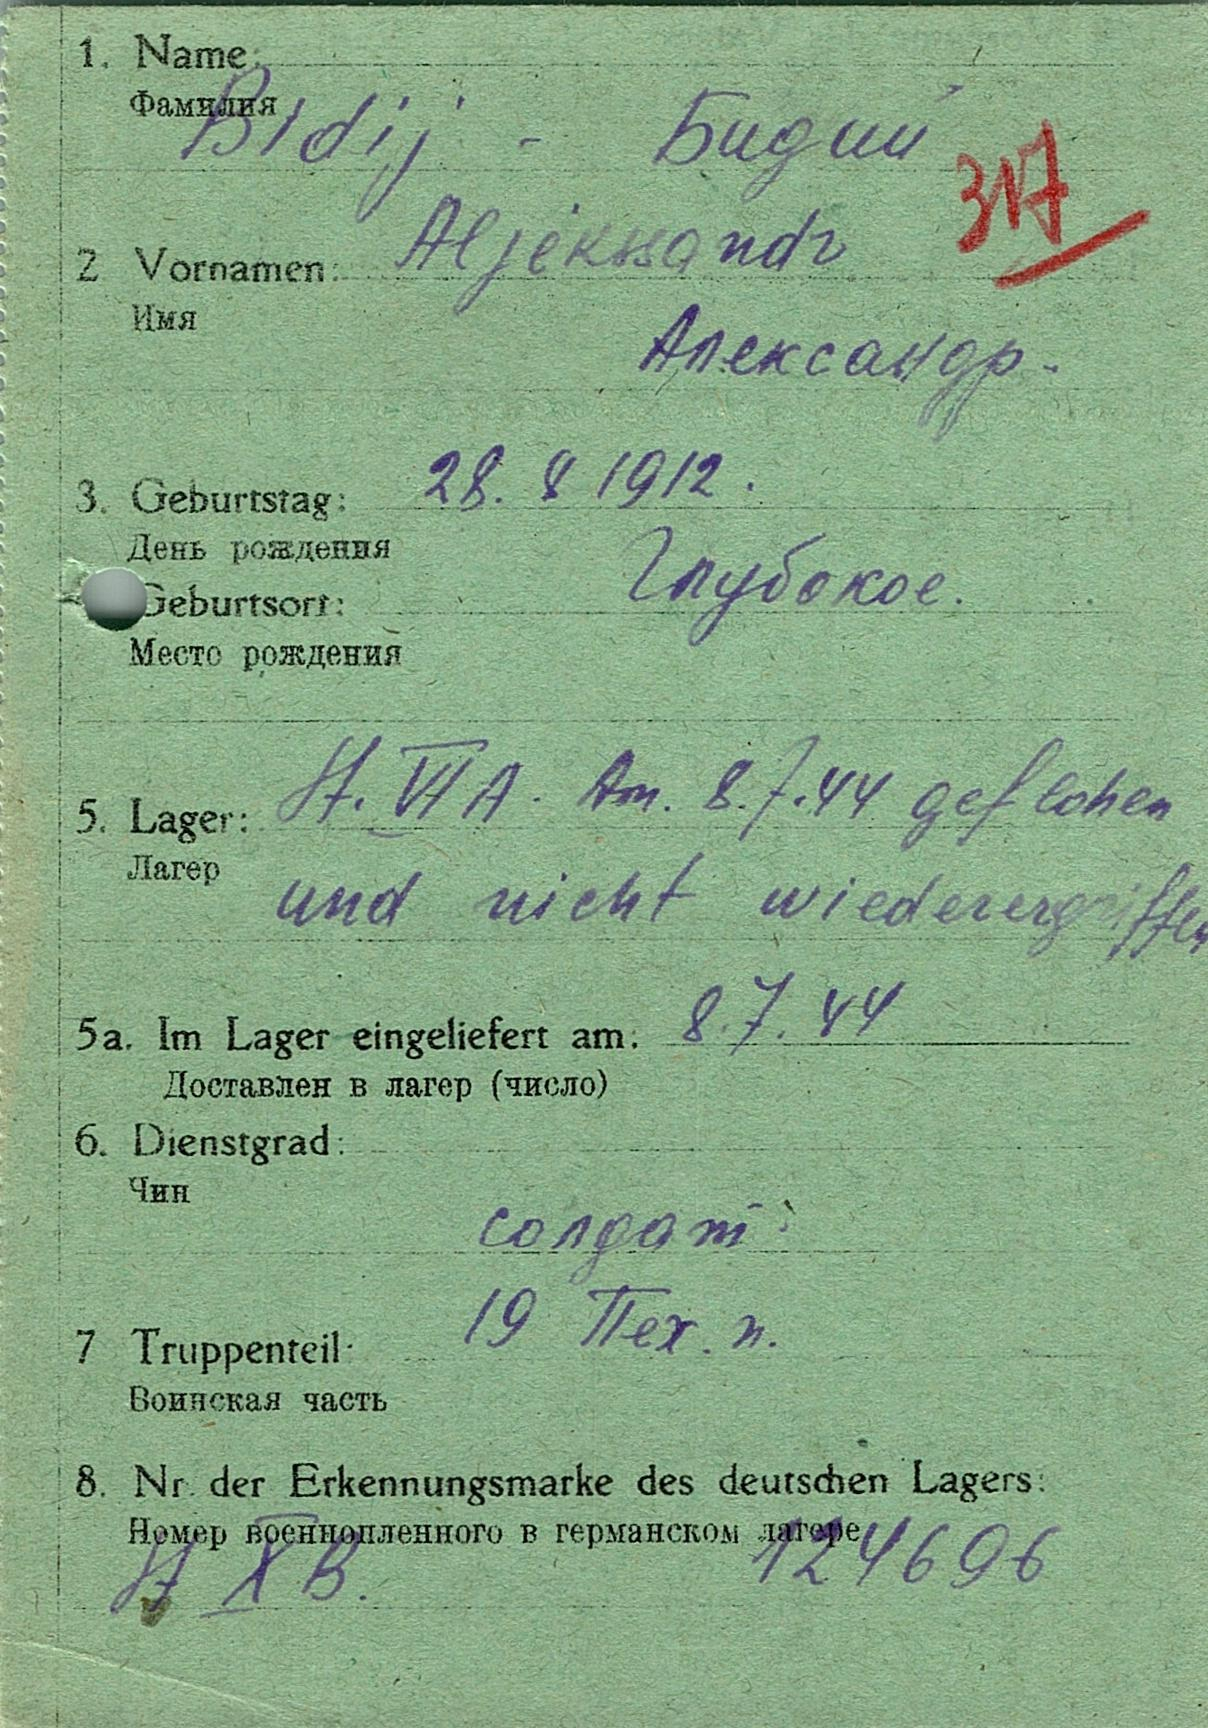 1. Name:
Фамилия
Bidij - Бидий
317
Aljekssandr
2 Vornamen:
Имя
Александр.
28. 8 1912.
3. Geburtstag:
День рождения
Глубокое.
Geburtsort:
Место рождения
St. VI A. Am. 8.7.44 geflohen
5. Lager:
Лагер
und nicht wiederergriffen
5a. Im Lager eingeliefert am: 8.7.44
Доставлен в лагер (число)
6. Dienstgrad:
Чин
солдат
19 Пех. п.
7 Truppenteil:
Воинская часть
8. Nr. der Erkennungsmarke des deutschen Lagers:
Номер военнопленного в германском лагере
St X B. 124696